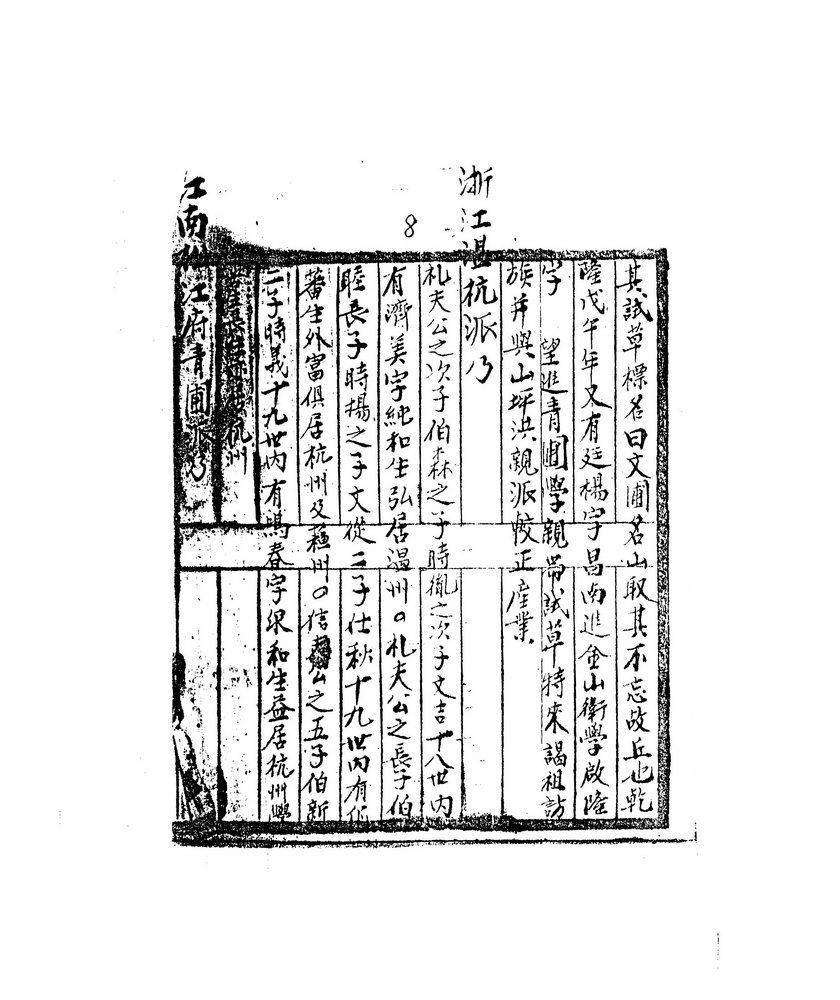 8
其試草標名曰文圃名山取其不忘故丘也乾
隆戊午年又有廷楊字昌南進金山衛學啟隆
字 望進青圃學親帶試草特來謁祖訪
族并與山坪洪親派較正產業
浙江溫杭派乃
札夫公之次子伯森之子時胤之次子文吉十八世內
有濟美字純和生弘居溫州○札夫公之長子伯
睦長子時揚之子文從二子仕秋十九世內有
蕃生外富俱居杭州及蘇州○信公之五子伯新
二子時義十九世內有鳴春字和生益居杭州
杭州
江南松江府青圃派乃